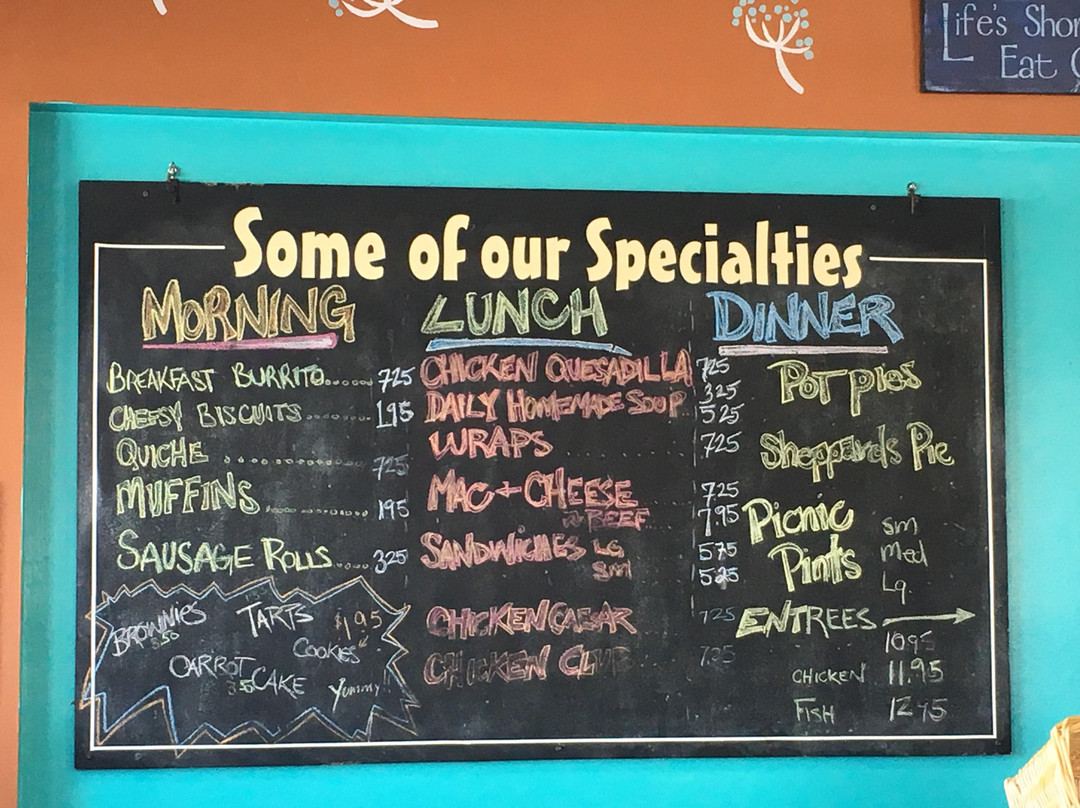 Life's Shor
Eat
Some of our Specialties
MORNING
BREAKFAST BURRITO...... 725
CHEESY BISCUITS........ 195
QUICHE ............ 725
MUFFINS ............ 195
SAUSAGE ROLLS..... 325
BROWNIES
TARTS $1.95
COOKIES
CARROT
350 CAKE
Yummy!
LUNCH
CHICKEN QUESADILLA 725
DAILY HOMEMADE SOUP 325
525
WRAPS 725
MAC + CHEESE 725
w BEEF 7.95
SANDWICHES LG 575
SM 525
CHICKEN CAESAR 725
CHICKEN CLUB 725
DINNER
POT pies
Sheppards Pie
Picnic
Pints
sm
Med
Lg.
ENTREES
10.95
CHICKEN 11.95
FISH 12 95